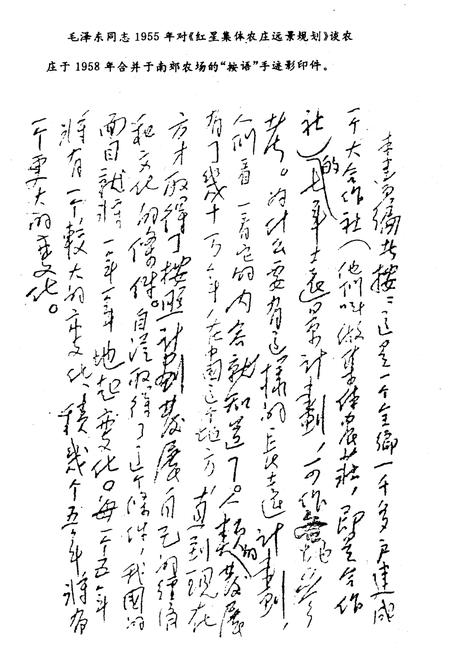 毛泽东同志1955年对《红星集体农庄远景规划》谈农
庄于1958年合并于南郊农场的“按语”手迹影印件。
本書编者按：這是一个全鄉一千多户建成
一个大合作社（他们叫做集体农莊，即是合作
社）的七年远景计劃，可作各地参
考。为什么要有这樣的長远计劃，
人们看一看它的内容就知道了。人類的發展
有了幾十万年，在中国這个地方，直到现在
方才取得了按照计劃發展自己的經濟
和文化的條件。自從取得了這个條件，我国的
面目就將一年一年地起变化。每一个五年
將有一个較大的变化，積幾个五年將有
一个更大的变化。